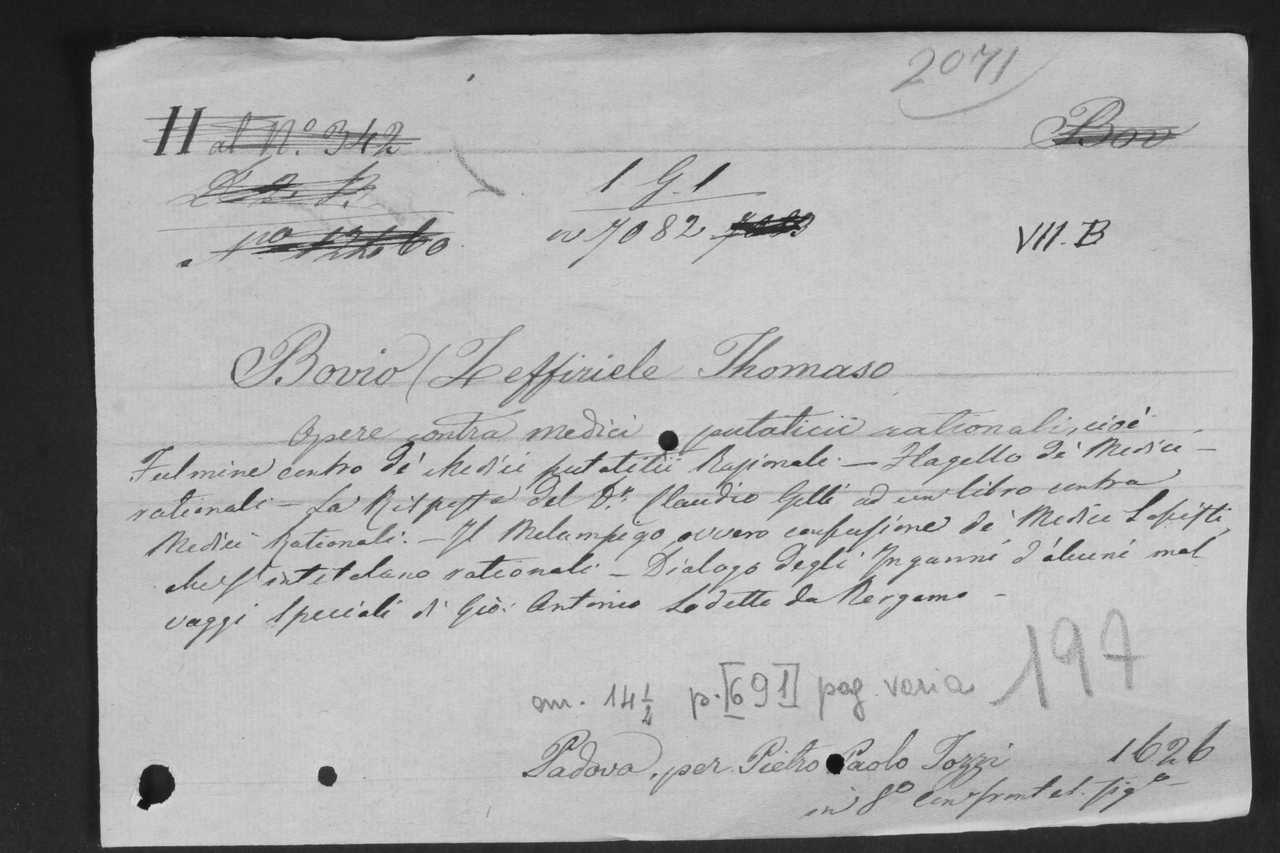 2071
H al N.o 342
Bov
1 G. 1
7082
VII. B
Bovio (Zeffiriele Thomaso
Opere contra medici putaticii rationali, cioè
Fulmine contro dè Medici putatitii Razionali — Flagello dè Medici
rationali — La Risposta del D.r Claudio Gelli ad un libro contra
Medici Rationali. — Il Melampigo ovvero confusione dè Medici Sofisti
che s'intitolano rationali — Dialogo degli Inganni d'alcuni mal
vaggi Speciali di Gio: Antonio Lodetto da Bergamo —
cm. 14 1/2 p. [691] pag. varia
197
Padova, per Pietro Paolo Tozzi 1626
in 8o con front. fig.to